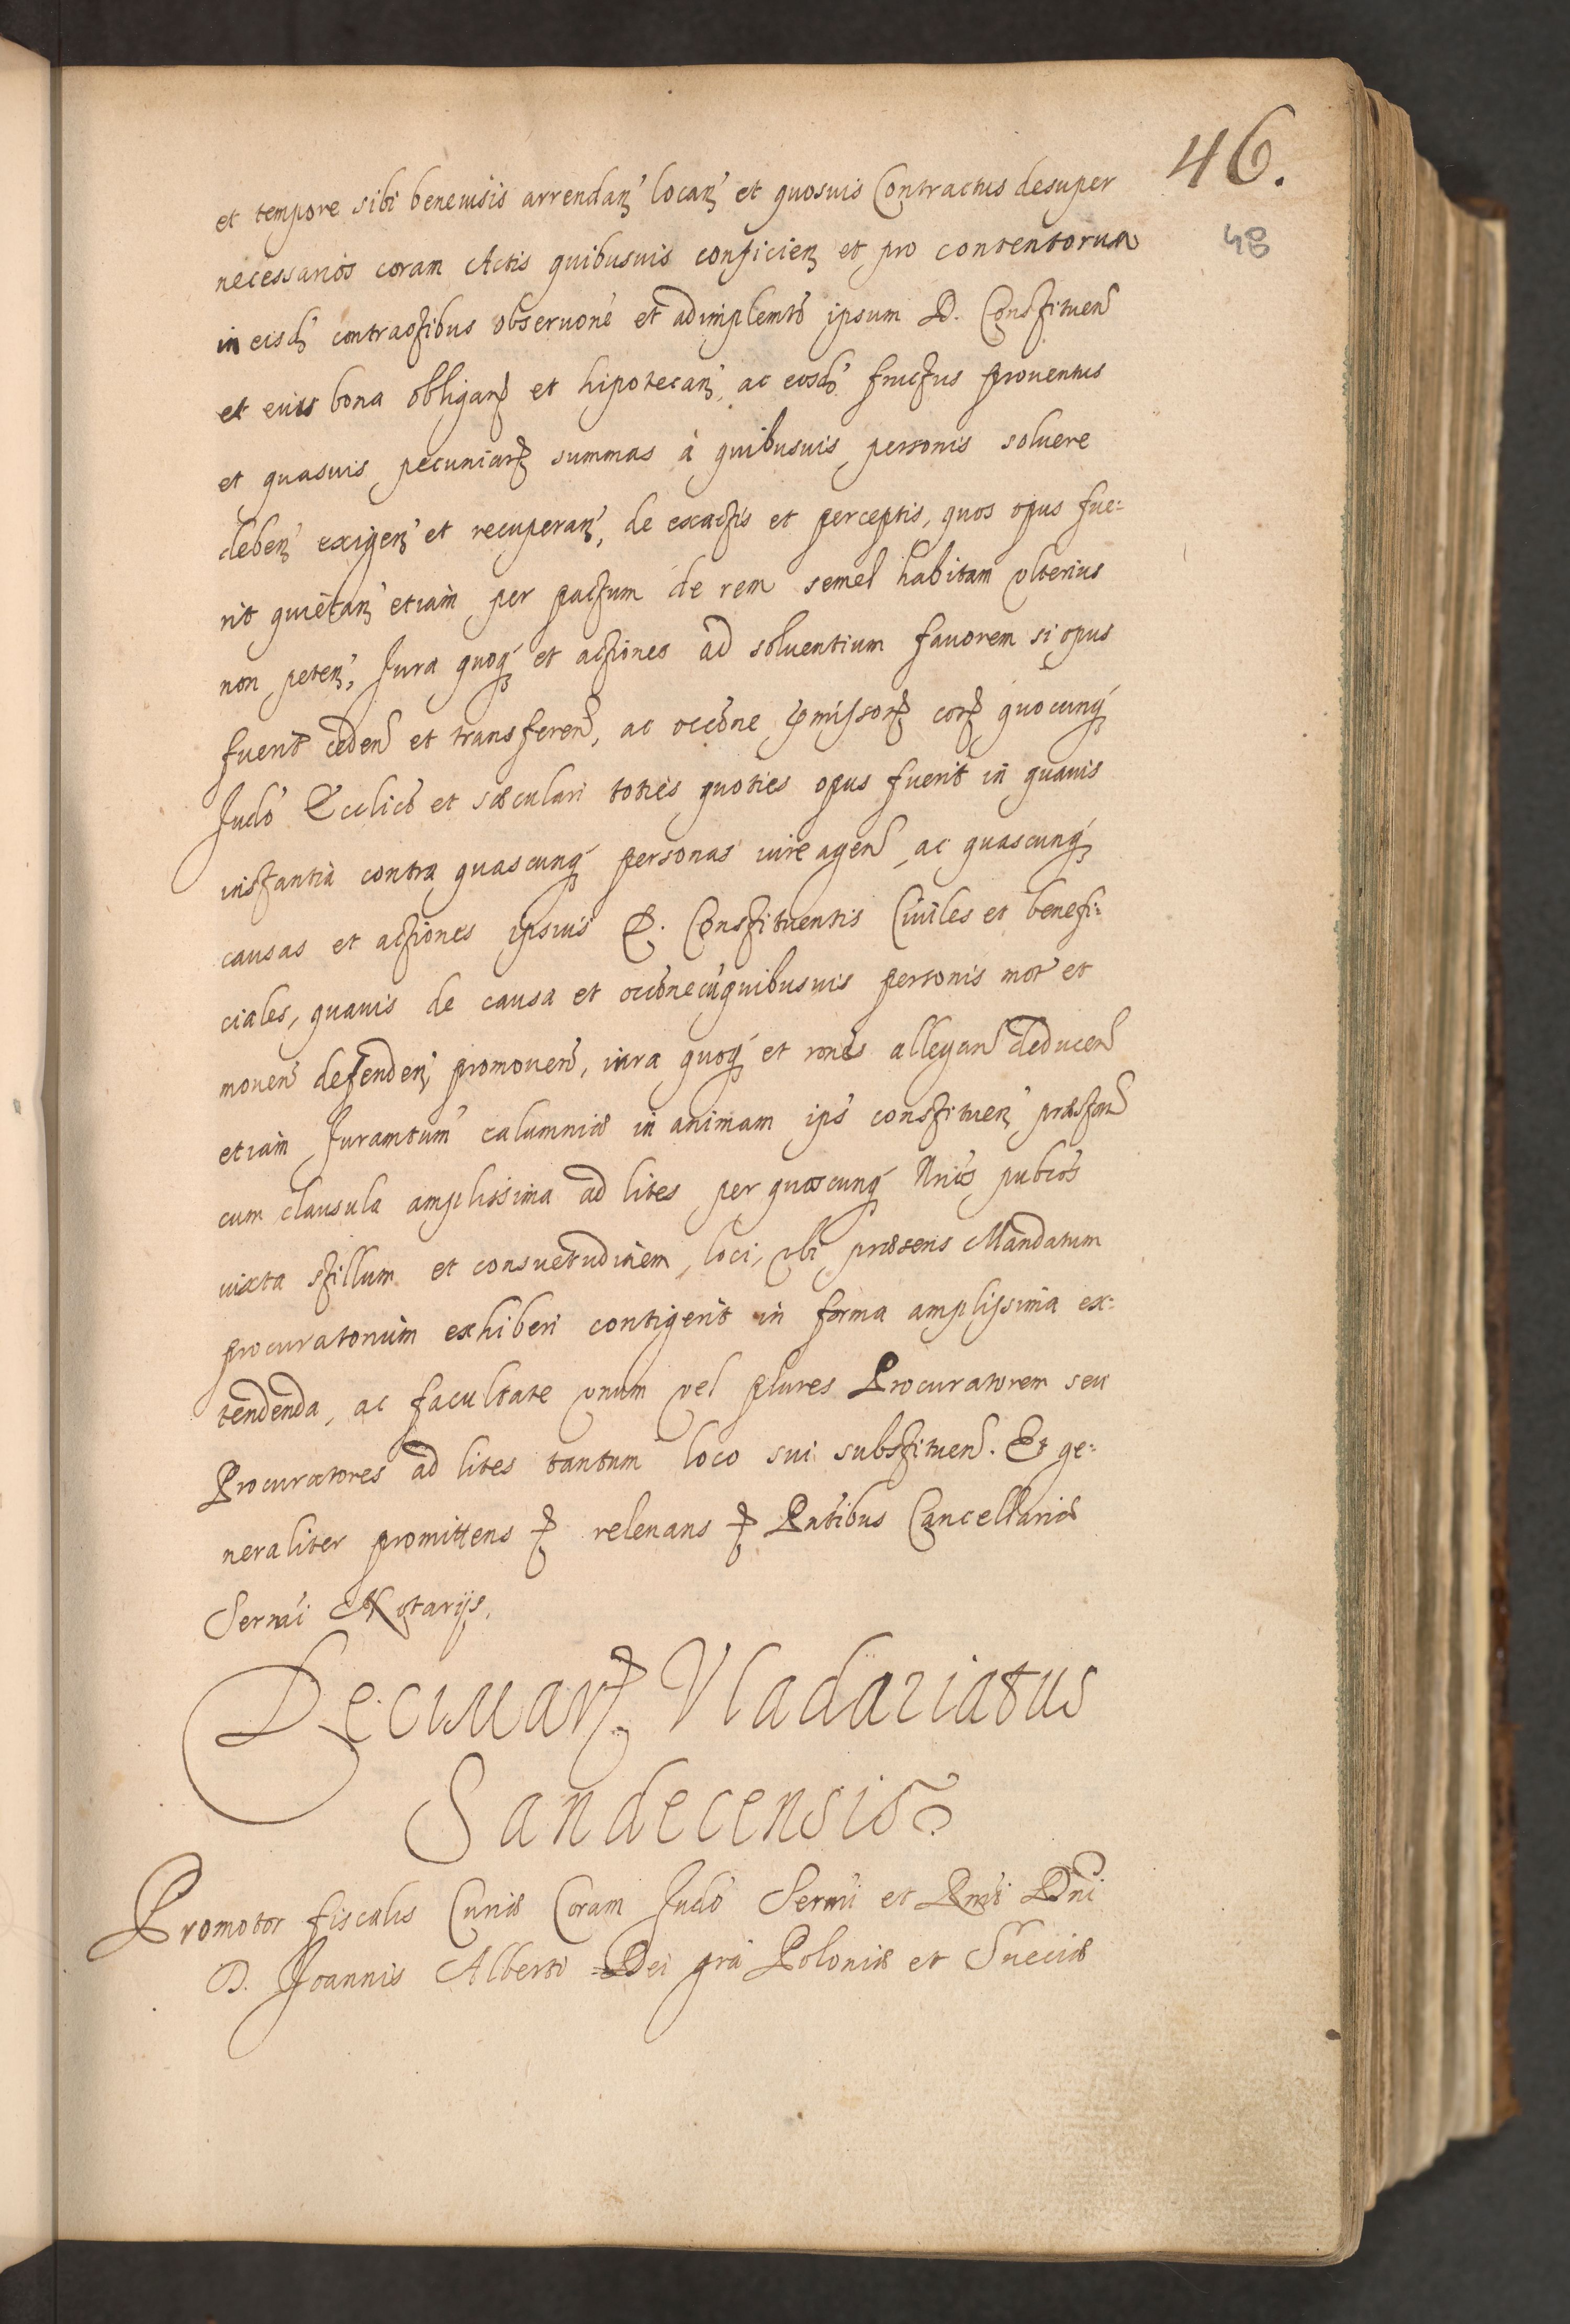 46.
48
et tempore sibi beneuisis arrendan̄ locan̄ et quosuis Contractus desuper
necessarios coram Actis quibusuis conficien̄ et pro contentorum
in eisd̄ contractibus obseruōne et adimplemt̄o ipsum D. Constituen̄
et eius bona obligan̄ et hipotecan̄, ac eosd̄ fructus prouentus
et quasuis pecuniarꝝ summas à quibusuis personis soluere
deben̄ exigen̄ et recuperan̄, de exactis et perceptis, quos opus fue:
rit quietan̄ etiam per pactum de rem semel habitam vlterius
non peten̄, Jura quoqꝫ et actiones ad soluentium fauorem si opus
fuerit ceden̄ et transferen̄, ac occōne p̄missorꝝ corꝝ quocunqꝫ
Judō Ecclicō et sæculari toties quoties opus fuerit in quauis
instantia contra quascunqꝫ personas iure agen̄, ac quascunqꝫ
causas et actiones ipsius D. Constituentis Ciuiles et benefi:
ciales, quauis de causa et occōne cū quibusuis personis mot̄ et
mouen̄ defenden̄, promouen̄, iura quoqꝫ et rōnes allegan̄ deducen̄
etiam Juramtum̄ calumniæ in animam ips̄ constituen̄ præstan̄
cum clausula amplissima ad lites per quoscunqꝫ Nrios pubcos
iuxta stillum et consuetudinem, loci, vbi præsens Mandatum
procuratorium exhiberi contigerit in forma amplissima ex:
tendenda, ac facultate vnum vel plures Procuratorem seu
Procuratores ad lites tantum loco sui substituen̄. Et ge:
neraliter promittens ꝝ releuans ꝝ Pntibus Cancellariæ
Sermi Notarijs.
Decimarꝝ Vladariatus
Sandecensis
Promotor fiscalis Curiæ Coram Judō Sermi et Rmi Dni
D. Joannis Alberti Dei grā Poloniæ et Sueciæ